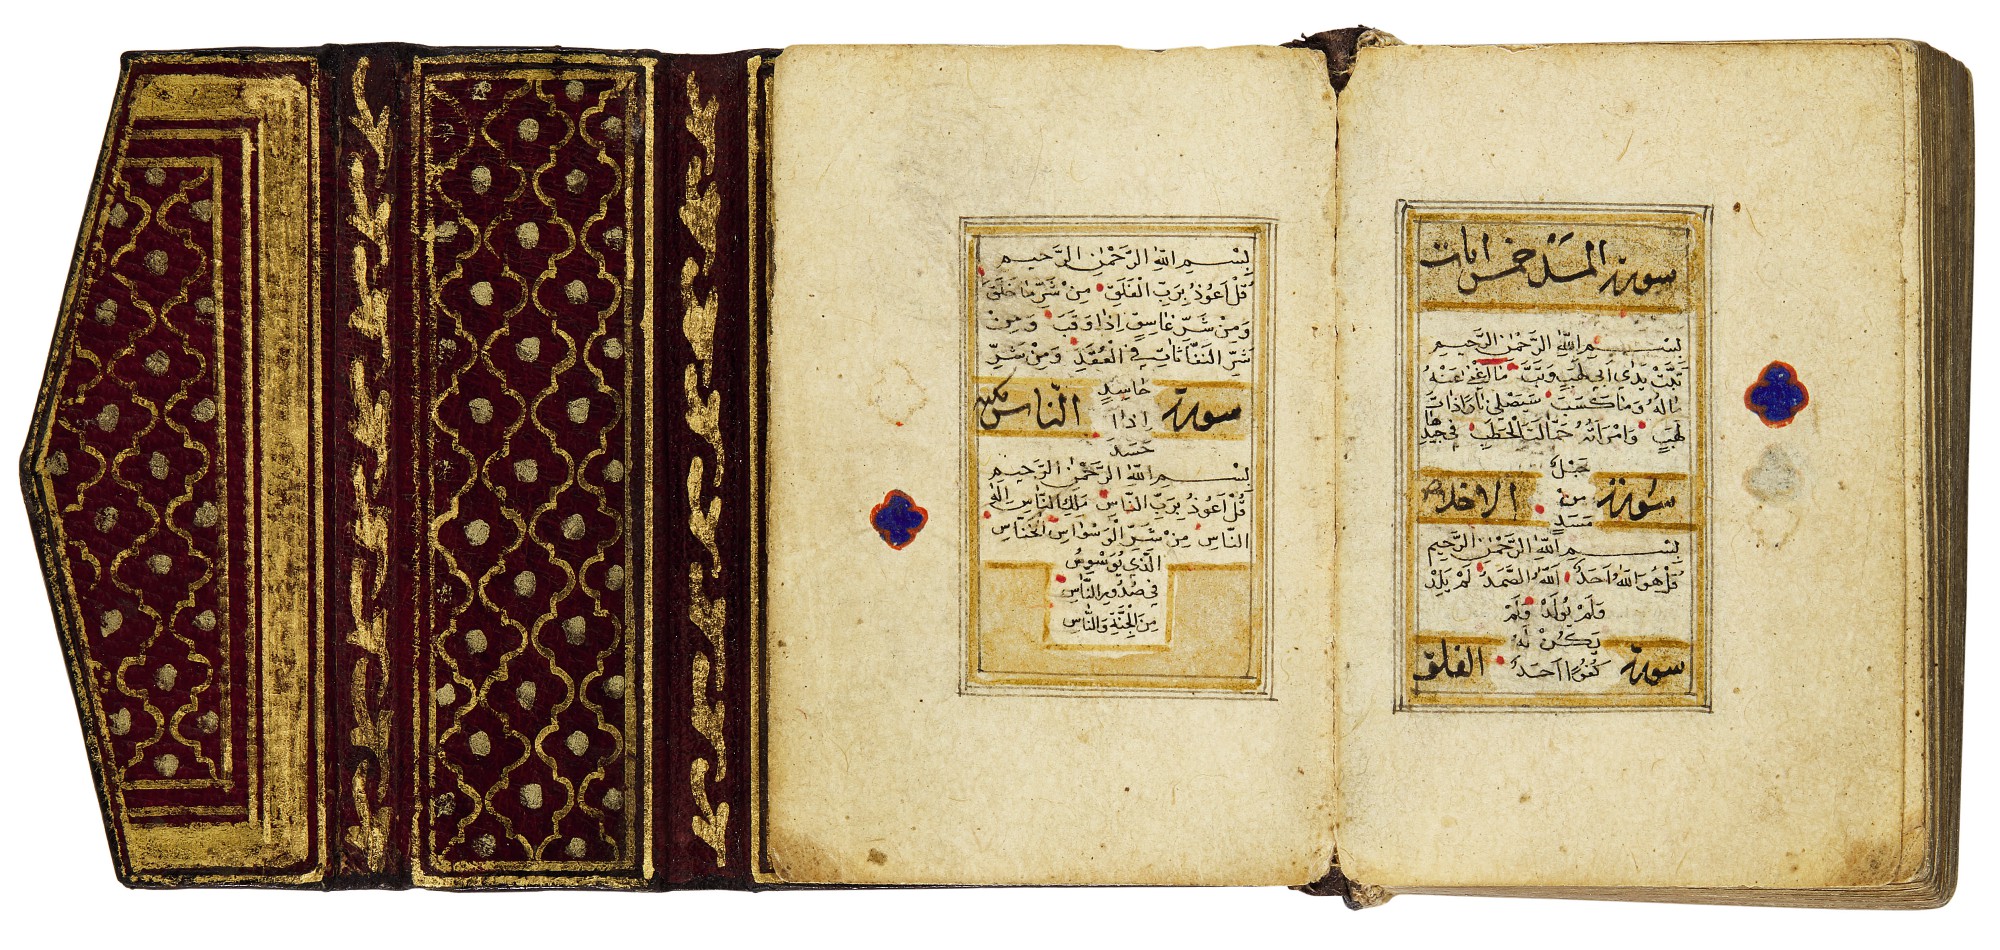 سورة المسد خمس ايات
بِسْمِ اللّٰهِ الرَّحْمٰنِ الرَّحِيمِ
تَبَّتْ يَدَى اَبِى لَهَبٍ وَتَبَّ مَا اَغْنٰى عَنْهُ
مَالُهُ وَمَا كَسَبَ سَيَصْلٰى نَارًا ذَاتَ
لَهَبٍ وَامْرَاَتُهُ حَمَّالَةَ الْحَطَبِ فِى جِيدِهَا
حَبْلٌ
سورة الاخلاص
مِنْ
مَسَدٍ
بِسْمِ اللّٰهِ الرَّحْمٰنِ الرَّحِيمِ
قُلْ هُوَ اللّٰهُ اَحَدٌ اَللّٰهُ الصَّمَدُ لَمْ يَلِدْ
وَلَمْ يُولَدْ وَلَمْ
يَكُنْ لَهُ
سورة الفلق
كُفُوًا اَحَدٌ
بِسْمِ اللّٰهِ الرَّحْمٰنِ الرَّحِيمِ
قُلْ اَعُوذُ بِرَبِّ الْفَلَقِ مِنْ شَرِّ مَا خَلَقَ
وَمِنْ شَرِّ غَاسِقٍ اِذَا وَقَبَ وَمِنْ
شَرِّ النَّفَّاثَاتِ فِى الْعُقَدِ وَمِنْ شَرِّ
حَاسِدٍ
سورة الناس
اِذَا
حَسَدَ
بِسْمِ اللّٰهِ الرَّحْمٰنِ الرَّحِيمِ
قُلْ اَعُوذُ بِرَبِّ النَّاسِ مَلِكِ النَّاسِ اِلٰهِ
النَّاسِ مِنْ شَرِّ الْوَسْوَاسِ الْخَنَّاسِ
الَّذِى يُوَسْوِسُ
فِى صُدُورِ النَّاسِ
مِنَ الْجِنَّةِ وَالنَّاسِ